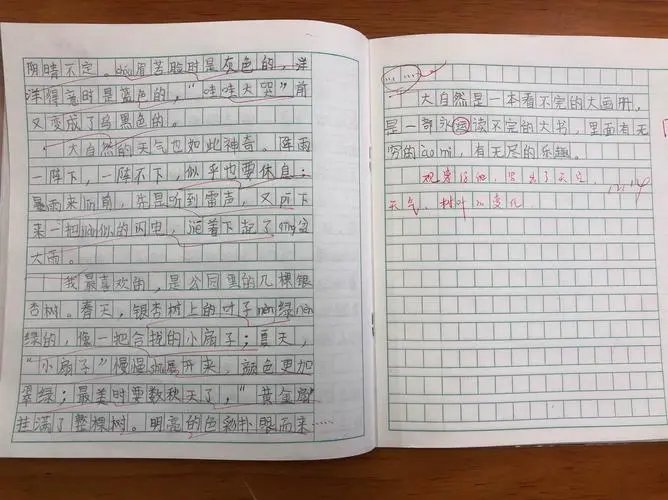 阴晴不定。chóu眉苦脸时是灰色的，洋
洋得意时是蓝色的，“哇哇大哭”前
又变成了乌黑色的。
大自然的天气也如此神奇。阵雨
一阵下，一阵不下，似乎也要休息；
暴雨来临前，先是听到雷声，又pī下
来一把jiàn似的闪电，接着下起了qīng盆
大雨。
我最喜欢的，是公园里的几棵银
杏树。春天，银杏树上的叶子nèn绿nèn
绿的，像一把合拢的小扇子；夏天，
“小扇子”慢慢shū展开来，颜色更加
翠绿；最美时要数秋天了，“黄金扇”
挂满了整棵树。明亮的色彩扑眼而来
……
大自然是一本看不完的大画册，
是一部永远读不完的大书，里面有无
穷的ào mì，有无尽的乐趣。
观察仔细，写出了天空、
天气、树叶的变化